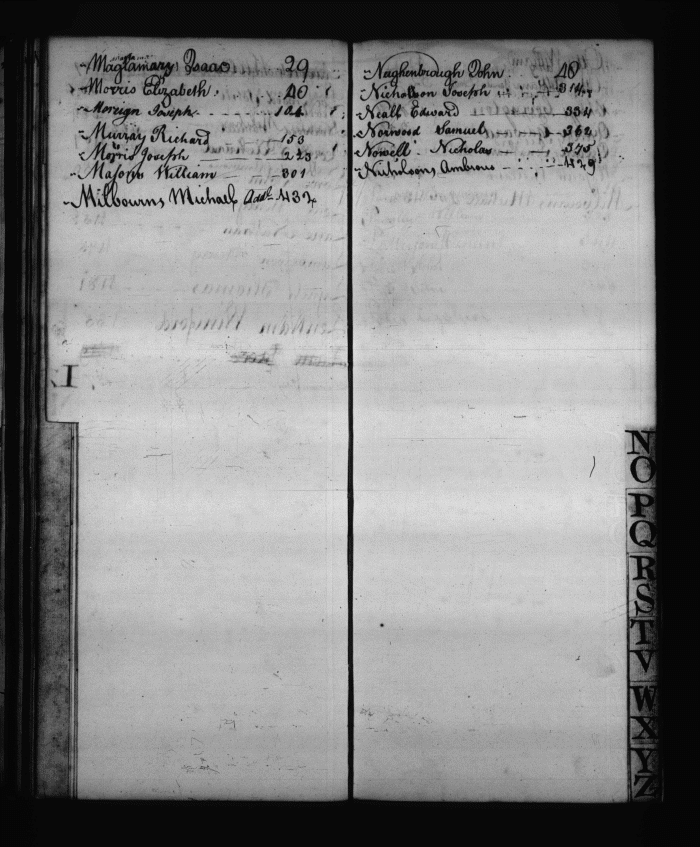 Maglamary Isaac 29
Morris Elizabeth 40
Moreign Joseph 104
Murray Richard 153
Morris Joseph
Mason William 301
Milbourns Michael 432
Naghenbrough John 40
Nicholson Joseph 314
Neall Edward 334
Norwood Samuel 362
Nowell Nicholas 375
Nicholsons Ambrous 429
I
N
O
P
Q
R
S
T
V
W
X
Y
Z